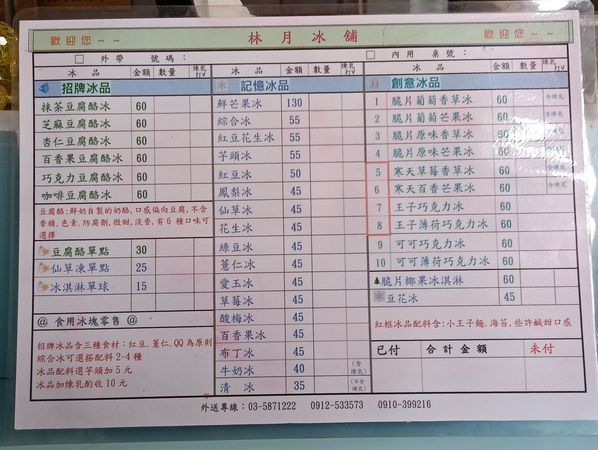 歡迎您~~ 林月冰舖 歡迎您~~
□外帶 號碼: □內用 桌號:
冰品 金額 數量 煉乳打V
招牌冰品
抹茶豆腐酪冰 60
芝麻豆腐酪冰 60
杏仁豆腐酪冰 60
百香果豆腐酪冰 60
巧克力豆腐酪冰 60
咖啡豆腐酪冰 60
豆腐酪:鮮奶自製的奶酪,口感偏向豆腐,不含
香精,色素,防腐劑,微甜,淡香,有6種口味可
選擇
豆腐酪單點 30
仙草凍單點 25
冰淇淋單球 15
@ 食用冰塊零售 @
招牌冰品含三種食材:紅豆,薏仁,QQ為原則
綜合冰可選搭配料2-4種
冰品配料選芋頭加5元
冰品加煉乳酌收10元
冰品 金額 數量 煉乳打V
記憶冰品
鮮芒果冰 130
綜合冰 55
紅豆花生冰 55
芋頭冰 55
紅豆冰 50
鳳梨冰 45
仙草冰 45
花生冰 45
綠豆冰 45
薏仁冰 45
愛玉冰 45
草莓冰 45
酸梅冰 45
百香果冰 45
布丁冰 45
牛奶冰 40 (含煉乳)
清冰 35 (不含煉乳)
冰品 金額 數量 煉乳打V
創意冰品
1 脆片葡萄香草冰 60 含煉乳
2 脆片葡萄芒果冰 60
3 脆片原味香草冰 60 含煉乳
4 脆片原味芒果冰 60
5 寒天草莓香草冰 60 含煉乳
6 寒天百香芒果冰 60 含煉乳
7 王子巧克力冰 60
8 王子薄荷巧克力冰 60
9 可可巧克力冰 60
10 可可薄荷巧克力冰 60
脆片椰果冰淇淋 60
豆花冰 45
紅框冰品配料含:小王子麵,海苔,些許鹹甜口感
已付 合計金額 未付
外送專線:03-5871222 0912-533573 0910-399216